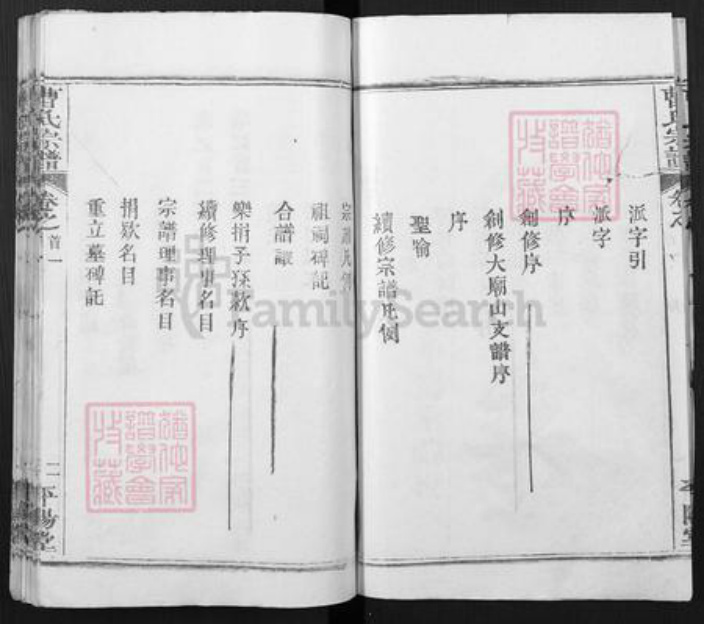 曹氏宗譜
派字引
派字
序
創修序
創修大廟山支譜序
序
聖喻
續修宗譜凡例
祖祠碑記
合譜讞
樂捐予孫欵序
續修理事名目
宗譜理事名目
捐欵名目
重立墓碑記
曹氏宗譜
卷之首一
二
平陽堂
FamilySearch
譜學會
特藏
譜學會
特藏